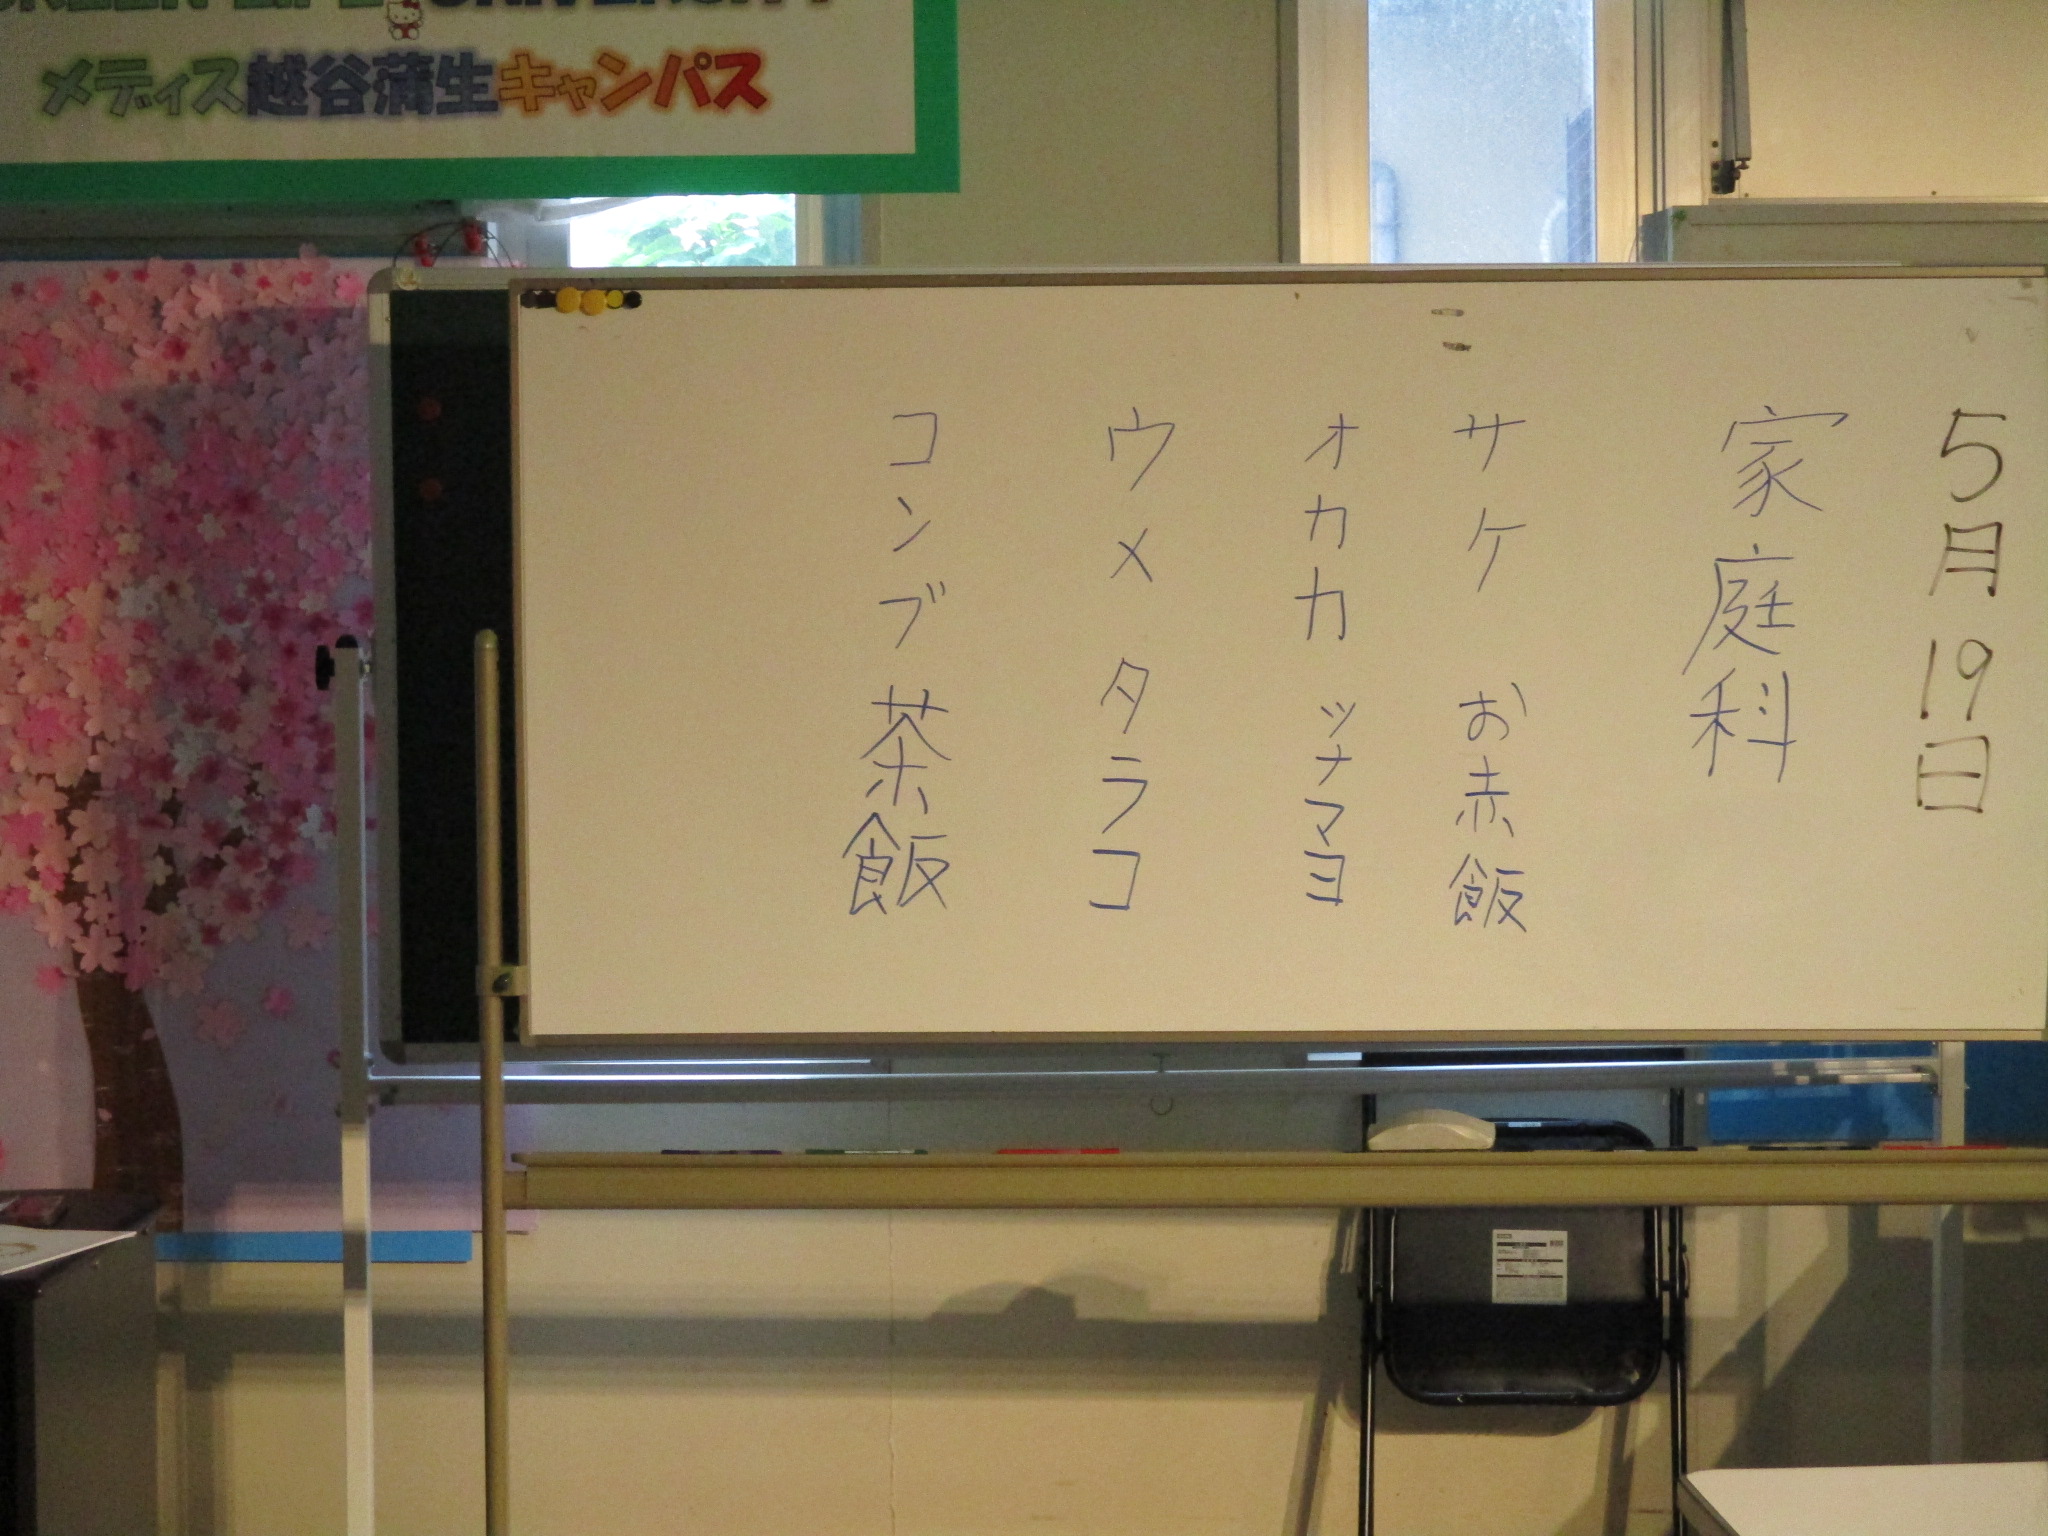 GREEN LIFE UNIVERSITY
メディス越谷蒲生キャンパス
5月19日
家庭科
サケ お赤飯
オカカ ツナマヨ
ウメ タラコ
コンブ 茶飯